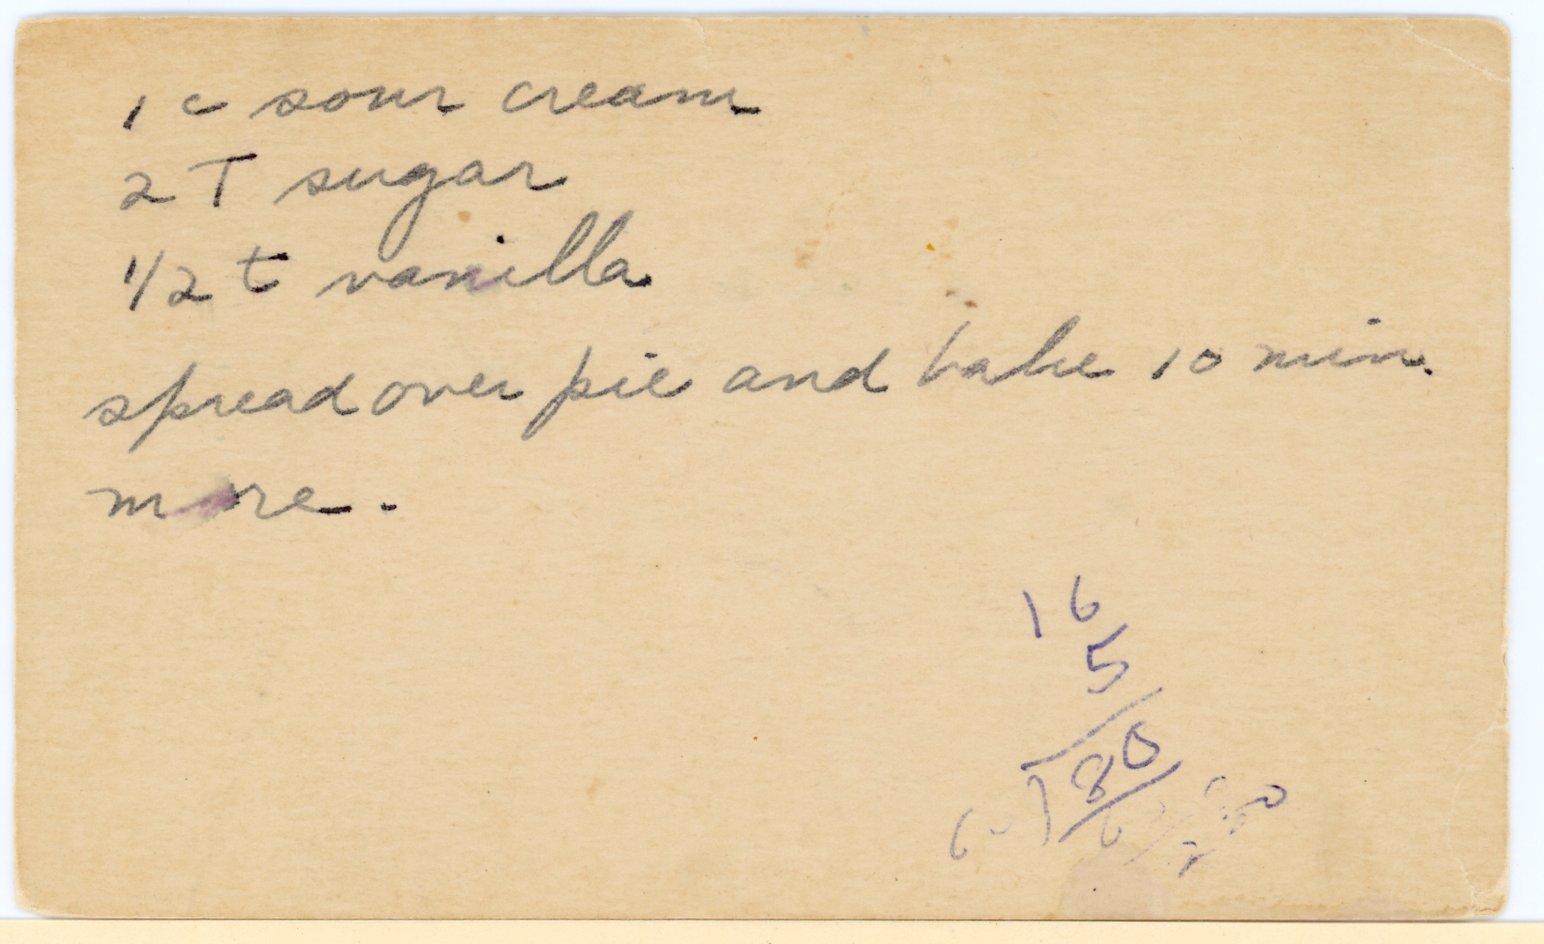 1 c sour cream
2 T sugar
1/2 t vanilla
spread over pie and bake 10 min.
more.
16
5
80